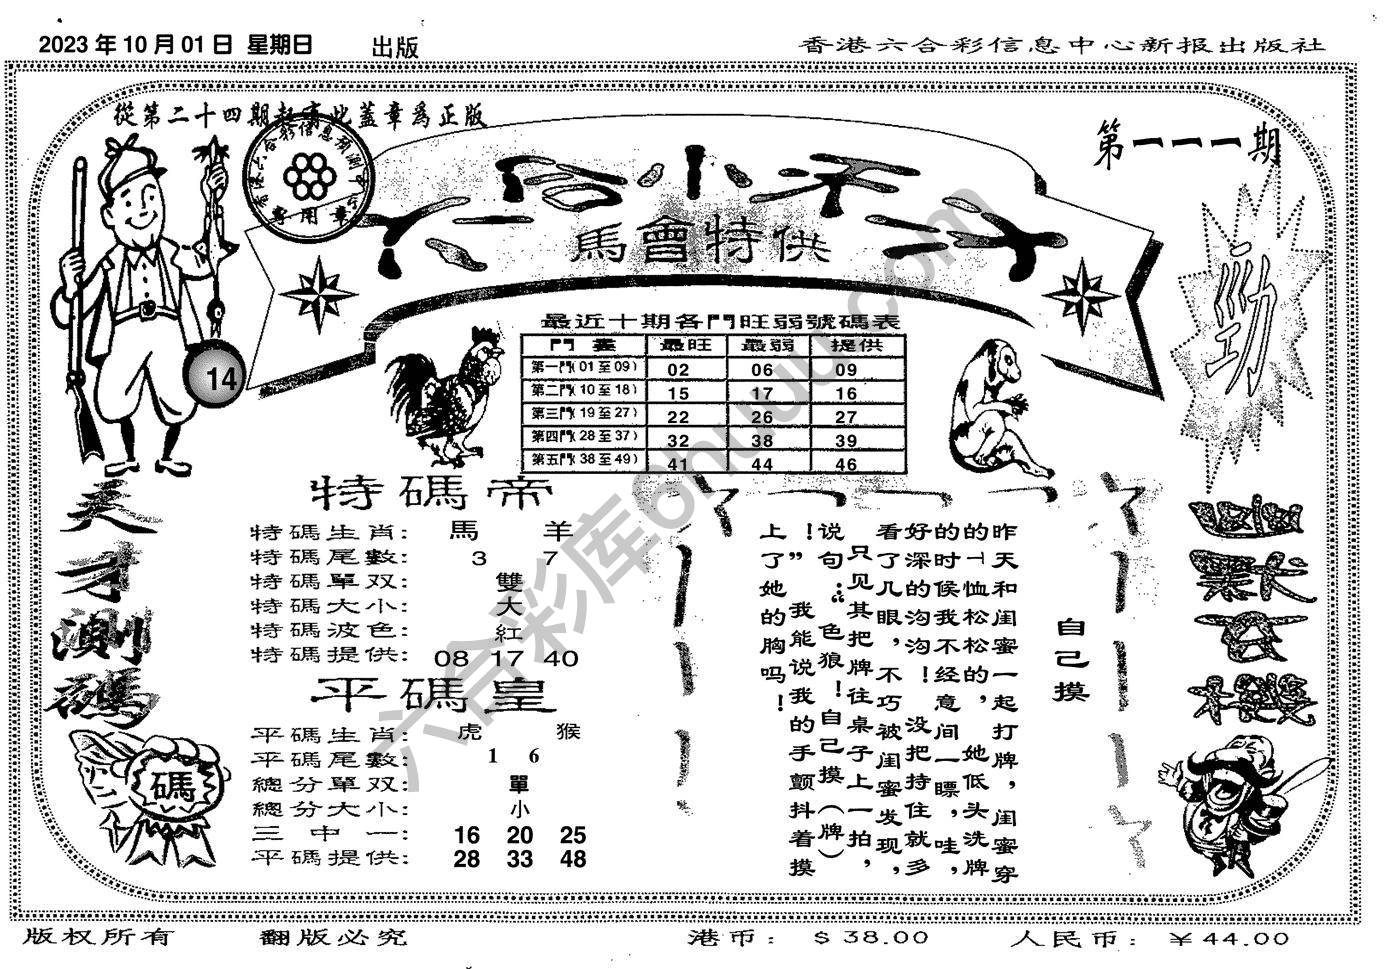 2023 年 10 月 01 日 星期日 出版
香港六合彩信息中心新报出版社
從第二十四期起有此蓋章為正版
香港六合彩信息預測中心
專用章
第一一一期
六合小子
馬會特供
勁
14
最近十期各門旺弱號碼表
門畫 最旺 最弱 提供
第一門(01至09) 02 06 09
第二門(10至18) 15 17 16
第三門(19至27) 22 26 27
第四門(28至37) 32 38 39
第五門(38至49) 41 44 46
天才測碼
碼
特碼帝
特碼生肖: 馬 羊
特碼尾數: 3 7
特碼單双: 雙
特碼大小: 大
特碼波色: 紅
特碼提供: 08 17 40
平碼皇
平碼生肖: 虎 猴
平碼尾數: 1 6
總分單双: 單
總分大小: 小
三中一: 16 20 25
平碼提供: 28 33 48
自己摸
昨天和闺蜜一起打牌,闺蜜穿
的T恤松松的,她低头洗牌
的时候我不经意间一瞟,哇,
好深的沟沟!没把持住就多
看了几眼,不巧被闺蜜发现,
只见其把牌往桌子上一拍,
说句:“色狼!自己摸(牌)
!”我能说我的手颤抖着摸
上了她的胸吗!
六合彩库6huu.com
版权所有 翻版必究 港币: $38.00 人民币: ¥44.00